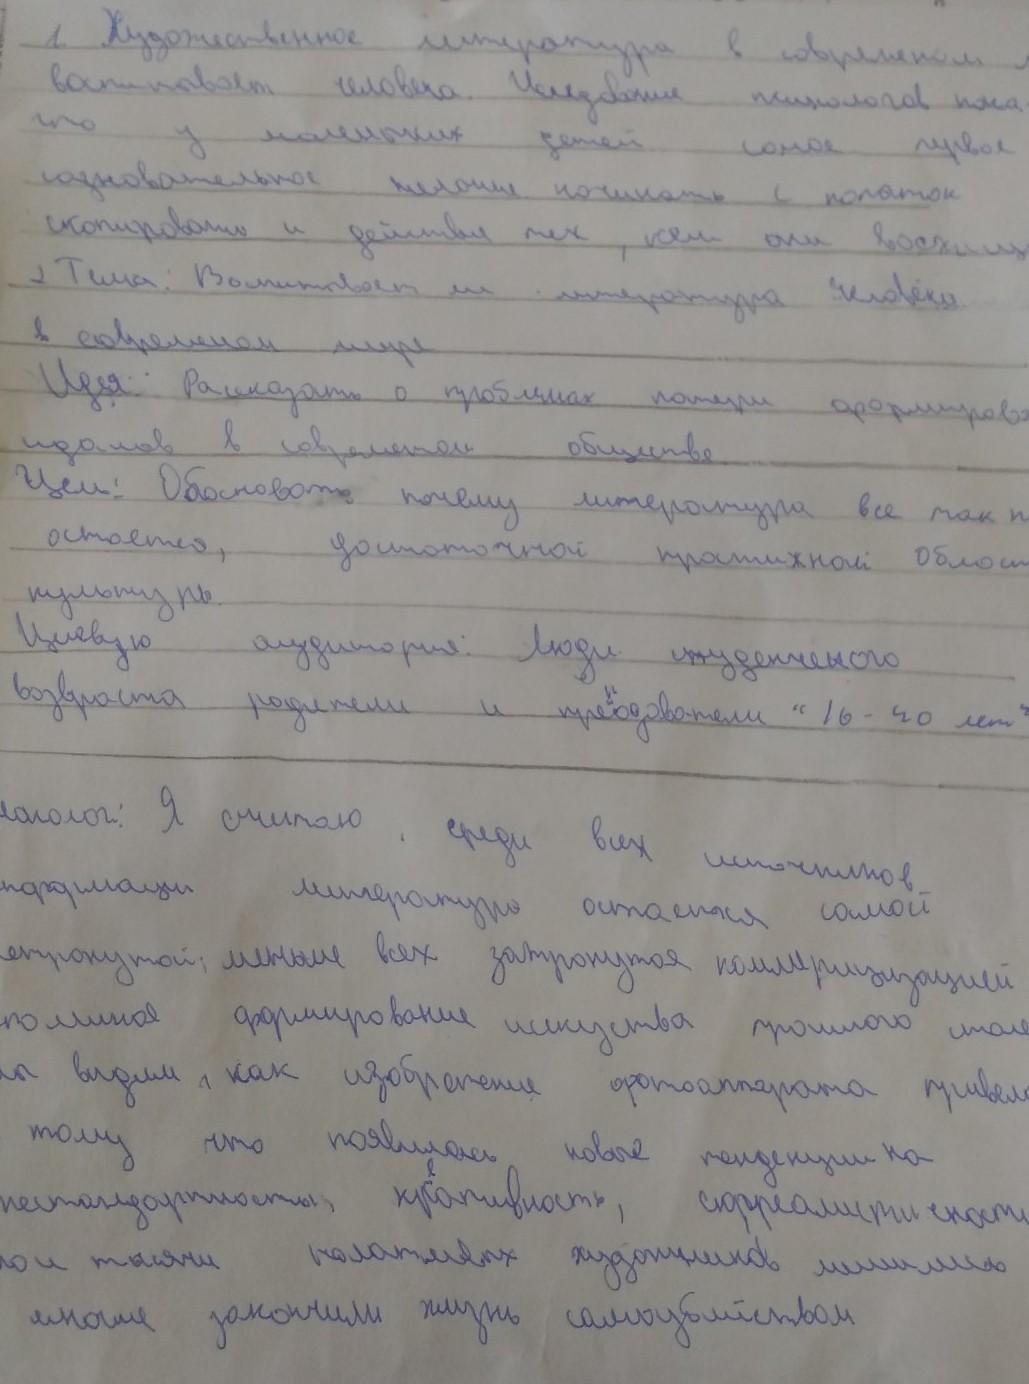 1. Художественное литература в современом
воспитывает человека. Иследование психологов пока
что у маленьких детей самое первое
желание начинать с попаток
скопировать и действия тех, кем они восхищ
2 Тема: Воспитывает ли литература человека
в современом мире
Идея: Рассказать о проблемах потери сформирова
идалов в современом обществе
Цель: Обосновать почему литература все так
остается, достаточной пристижной област
культуры.
Целевую аудитория: Люди студенческого
возвраста родители и преподователи "16-40 лет"
Я считаю, среди всех источников
нформации литература остаеться самой
етронутой, меньше всех затронутоя коммерцизацией
поминая формирование искуства прошлого столе
ы видим, как изобретение фотоаппарата привело
тому что появилась новые тенденции на
нестандартность, креативность, сюрреалистичность
тысячи талатливых художников
многие закончили жизнь самоубийством